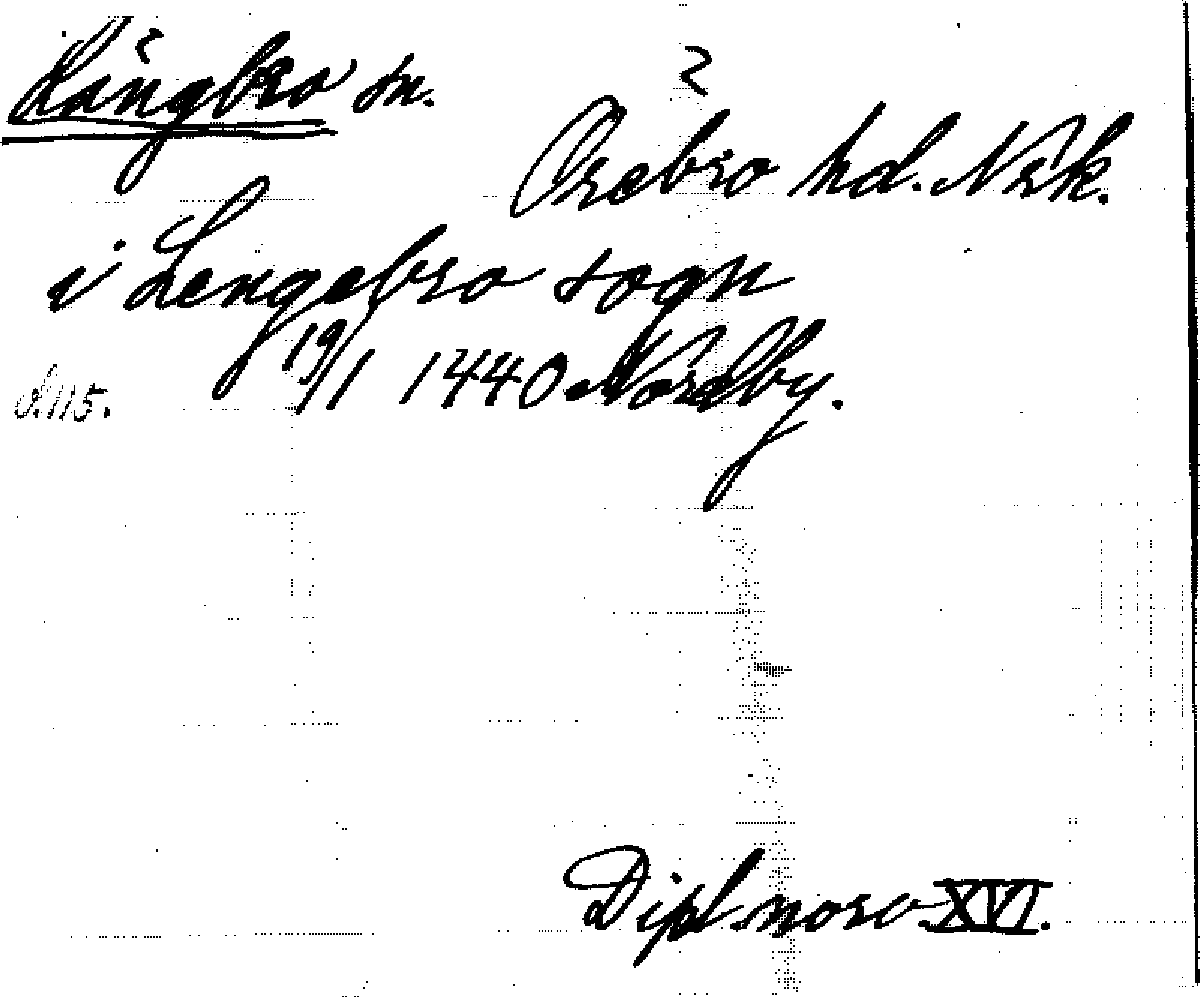 Långbro sn.
Örebro hd. Nrk.
i Lengebro sogn
19/1 1440 Nordby.
d. 115.
Dipl. norv. XVI.